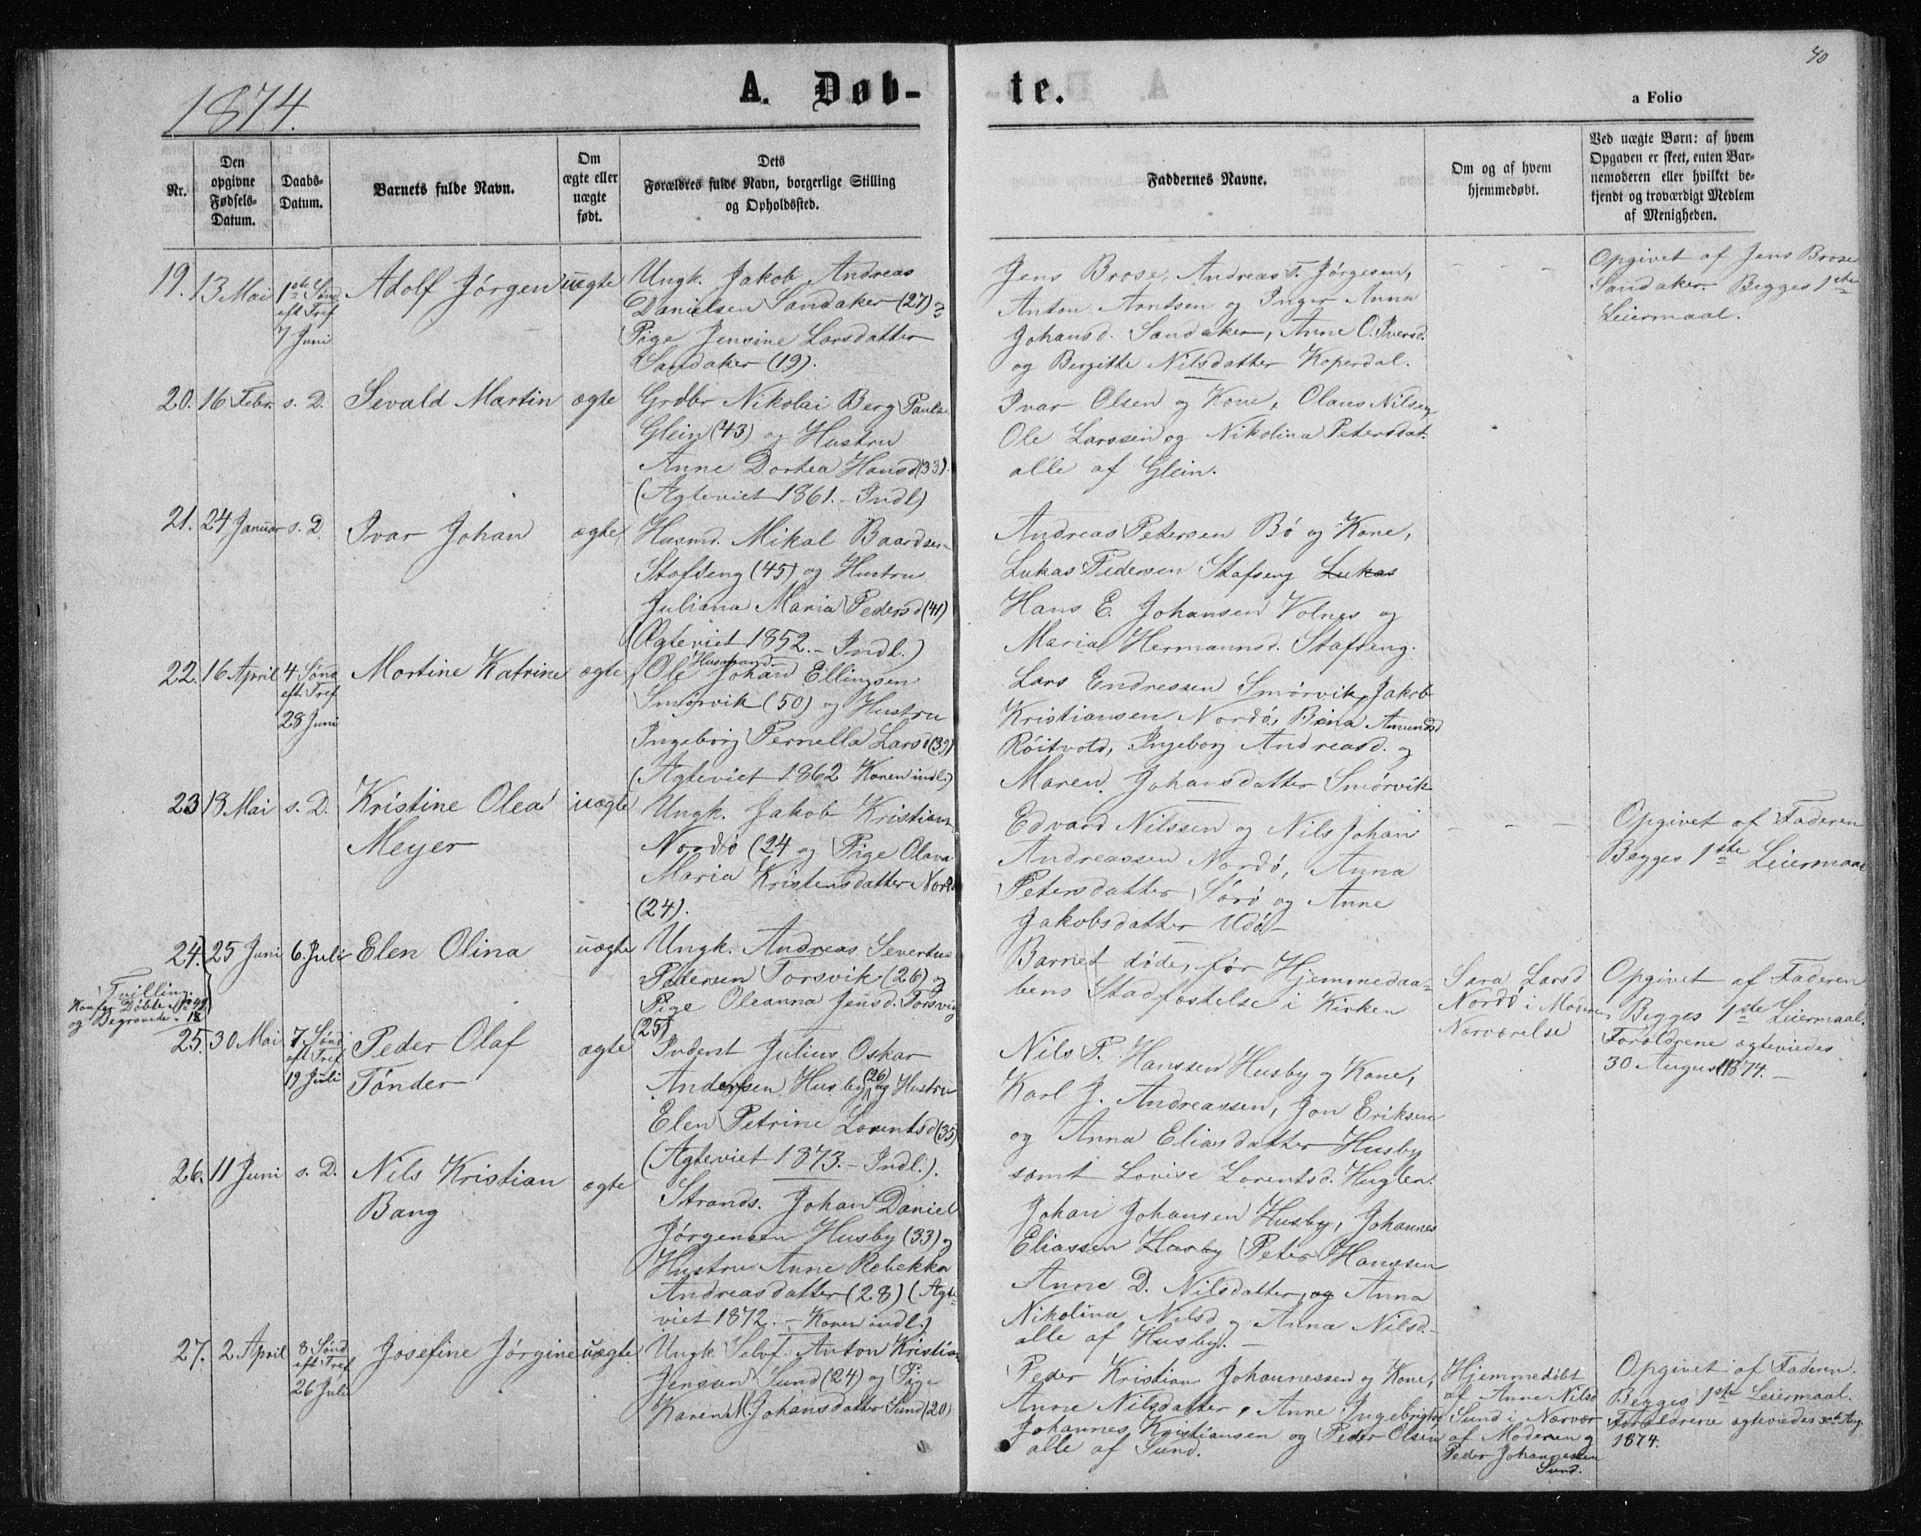 40
1874.
A. Døb-
te.
a Folio
Nr.
Den
opgivne
Fødsels-
Datum.
Daabs-
Datum.
Barnets fulde Navn.
Om
ægte eller
uægte
født.
Dets
Forældres fulde Navn, borgerlige Stilling
og Opholdssted.
Faddernes Navne.
Om og af hvem
hjemmedøbt.
Ved uægte Børn: af hvem
Opgaven er skeet, enten Bar-
nemoderen eller hvilket be-
kjendt og troværdigt Medlem
af Menigheden.
19.
13 Mai
1ste Sønd
eft Tref
7 Juni
Adolf Jørgen
uægte
Ungk. Jakob Andreas
Danielsen Sandaker (27) og
Pige Jensine Larsdatter
Sandaker (19).
Jens Brose, Andreas T. Jørgesen,
Anton Arntsen og Inger Anna
Johansd. Sandaker, Anne O. Iversd.
og Bergitte Nilsdatter Koperdal.
- - -
Opgivet af Jens Brose
Sandaker. Begges 1ste
Leiermaal.
20.
16 Febr.
s. D.
Sevald Martin
ægte
Grdbr Nikolai Berg Pauls.
Glein (43) og Hustru
Anne Dortea Hansd (33).
(Ægteviet 1861. - Indl)
Ivar Olsen og Kone, Olaus Nilsen
Ole Larssen og Nikolina Petersdat.
alle af Glein.
21.
24 Januar
s. D
Ivar Johan
ægte
Husmd. Mikal Baardsen
Stafseng (45) og Hustru
Juliana Maria Pedersd (41)
(Ægteviet 1852. - Indl.)
Andreas Petersen Bø og Kone,
Lukas Pedersen Stafseng Lukas
Hans E. Johansen Volnes og
Maria Hermannsd. Stafseng.
22.
16 April
4 Sønd
eft Tref
28 Juni
Martine Katrine
ægte
Husmand
Ole Johan Ellingsen
Smørvik (50) og Hustru
Ingeborg Pernella Larsd (39)
(Ægteviet 1862 Konen indl.)
Lars Endressen Smørvik, Jakob
Kristiansen Nordø, Bina Amundsd
Røitvold, Ingeborg Andreasd. og
Maren Johansdatter Smørvik
23
18 Mai
s. D.
Kristine Olea
Meyer
uægte
Ungk. Jakob Kristians
Nordø (24 og Pige Olava
Maria Kristensdatter Nordø
(24).
Edvard Nilssen og Nils Johan
Andreassen Nordø, Anna
Petersdatter Sørø og Anne
Jakobsdatter Udø
- - -
Opgivet af Faderen
Begges 1ste Leiermaal
24.
Tvilling.
25 Juni
6 Juli
Elen Olina
uægte
Ungk. Andreas Severtus
Pedersen Torsvik (26) og
Pige Oleanna Jensd. Torsvig
(25)
Barnet døde, før Hjemmedaa-
bens Stadfæstelse i Kirken
Sara Larsd
Nordø i Moderens
Nærværelse
Opgivet af Faderen
Begges 1ste Leiermaal.
Forældrene ægteviedes
30 August 1874. -
25.
30 Mai
7 Sønd
eft Tref
19 Juli
Peder Olaf
Tønder
ægte
Inderst Julius Oskar
Andersen Husby (26) og Hustru
Elen Petrine Lorentsd (35)
(Ægteviet 1873. - Indl.).
Nils P. Hanssen Husby og Kone,
Karl J. Andreassen, Jon Eriksen
og Anna Eliasdatter Husby
samt Lovise Lorentsd. Huglen.
26.
11 Juni
s. D.
Nils Kristian
Bang
ægte
Strands. Johan Daniel
Jørgensen Husby (33) og
Hustru Anne Rebekka
Andreasdatter (28) (Ægte-
viet 1872. - Konen indl.)
Johan Johansen Husby, Johannes
Eliassen Husby Peter Hanssen
Anne D. Nilsdatter, og Anna
Nikolina Nilsd og Anna Nilsd.
alle af Husby. -
27.
2 April
8 Sønd
eft Tref
26 Juli
Josefine Jørgine
uægte
Ungk. Selvf. Anton Kristian
Jenssen Sund (24) og Pige
Karen M Johansdatter Sund (20)
Peder Kristian Johannessen og Kone,
Anne Nilsdatter, Anne Ingebrigtsd
Johannes Kristiansen og Peder Olsen
alle af Sund.
Hjemmedøbt
af Anne Nilsd
Sund i Nærvær
af Moderen og
Peder Johannessen
Sund.
Opgivet af Faderen.
Begges 1ste Leiermaal.
Forældrene ægteviedes 30te Aug.
1874.